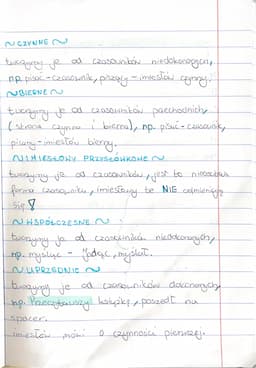 ~ CZYNNE ~
tworzymy je od czasowników niedokonanych,
np. pisać - czasownik, piszący - imiesłów czynny.
~ BIERNE ~
tworzymy je od czasowników przechodnich,
(strona czynna i bierna), np. pisać - czasownik,
pisany - imiesłów bierny.
~ IMIESŁOWY PRZYSŁÓWKOWE ~
tworzymy je od czasowników, jest to nieosobowa
forma czasownika, imiesłowy te NIE odmieniają
się!
~ WSPÓŁCZESNE ~
tworzymy je od czasownika niedokonanych,
np. myśląc - jedząc, myślał.
~ UPRZEDNIE ~
tworzymy je od czasowników dokonanych,
np. Przeczytawszy książkę, poszedł na
spacer.
imiesłów mówi o czynności pierwszej.